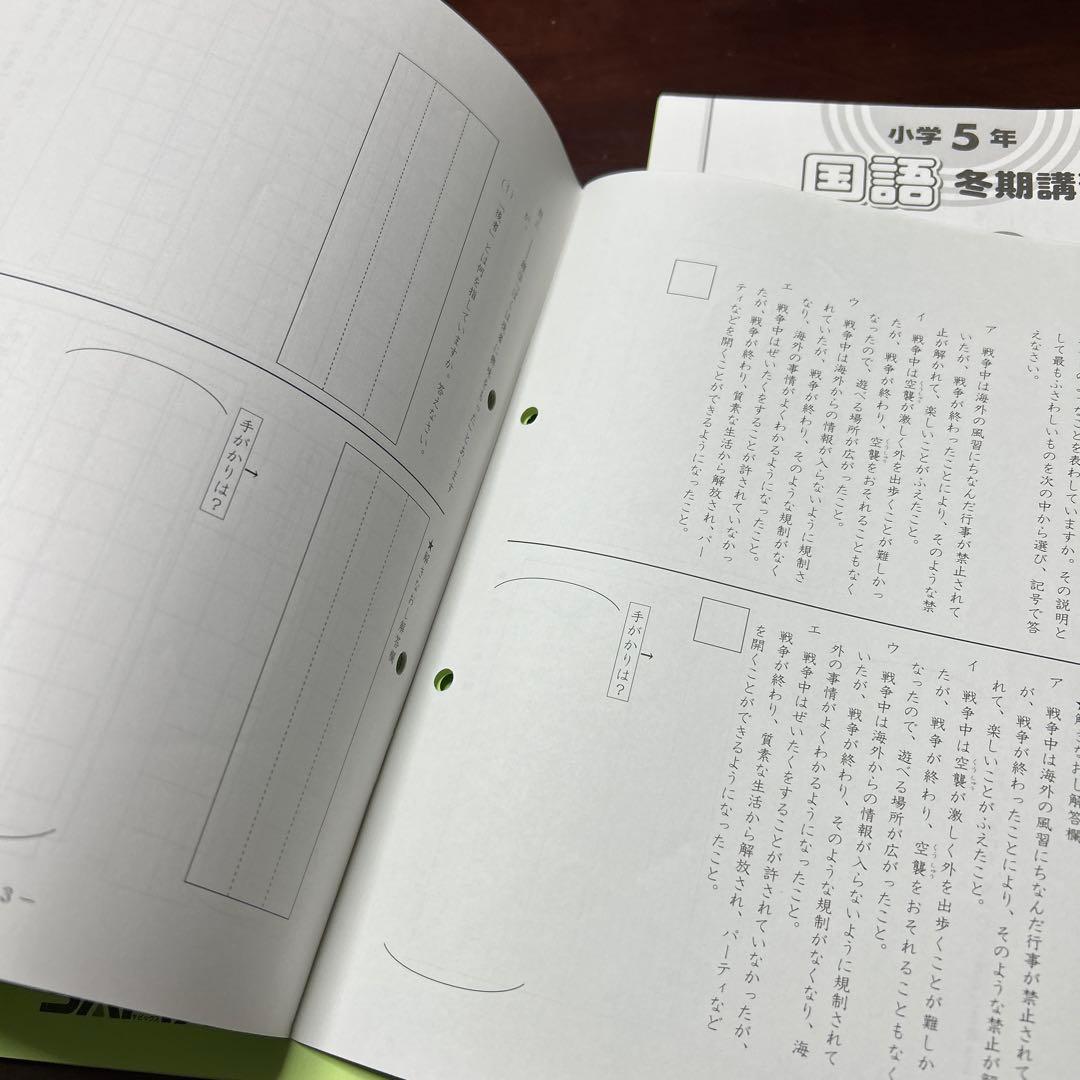 小学5年
国語 冬期講
ことを表わしていますか。その説明と
して最もふさわしいものを次の中から選び、記号で答
えなさい。
ア 戦争中は海外の風習にちなんだ行事が禁止されて
いたが、戦争が終わったことにより、そのような禁
止が解かれて、楽しいことがふえたこと。
イ 戦争中は空襲が激しく外を出歩くことが難しかっ
くうしゅう
たが、戦争が終わり、空襲をおそれることもなく
くうしゅう
なったので、遊べる場所が広がったこと。
ウ 戦争中は海外からの情報が入らないように規制さ
れていたが、戦争が終わり、そのような規制がなく
なり、海外の事情がよくわかるようになったこと。
エ 戦争中はぜいたくをすることが許されていなかっ
たが、戦争が終わり、質素な生活から解放され、パー
ティなどを開くことができるようになったこと。
★解きなおし解答欄
ア 戦争中は海外の風習にちなんだ行事が禁止されて
が、戦争が終わったことにより、そのような禁止が解
れて、楽しいことがふえたこと。
イ 戦争中は空襲が激しく外を出歩くことが難しか
くうしゅう
たが、戦争が終わり、空襲をおそれることもなく
くうしゅう
なったので、遊べる場所が広がったこと。
ウ 戦争中は海外からの情報が入らないように規制されて
いたが、戦争が終わり、そのような規制がなくなり、海
外の事情がよくわかるようになったこと。
エ 戦争中はぜいたくをすることが許されていなかったが、
戦争が終わり、質素な生活から解放され、パーティなど
を開くことができるようになったこと。
手がかりは?→
(1) 「後者」とは何を指していますか。答えなさい。
★解きなおし解答欄
手がかりは?→
3−
サピックス